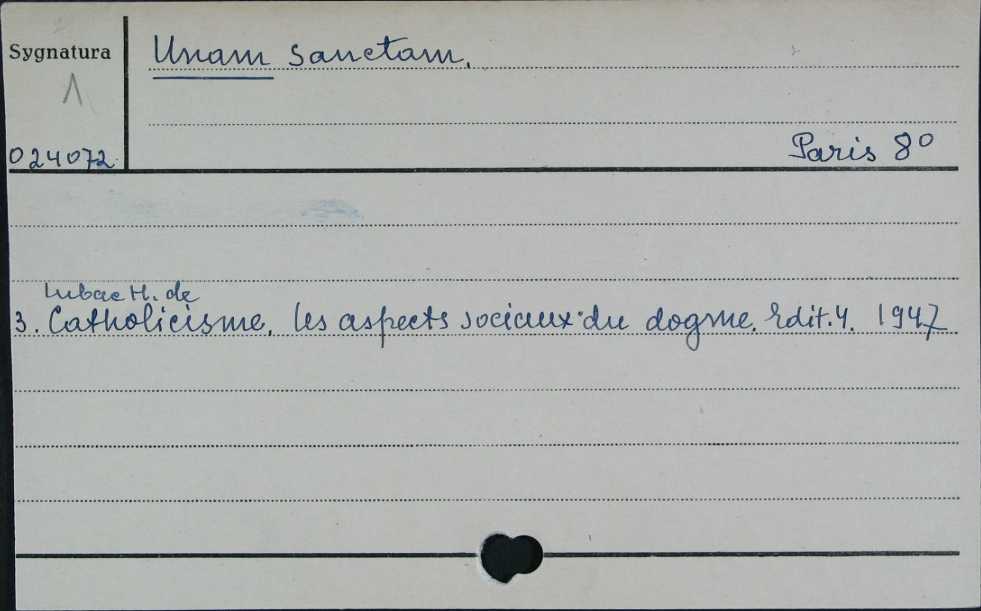 Sygnatura
Unam sanctam.
1
024072
Paris 8º
Lubac H. de
3. Catholicisme. les aspects sociaux du dogme. Edit. 4. 1947